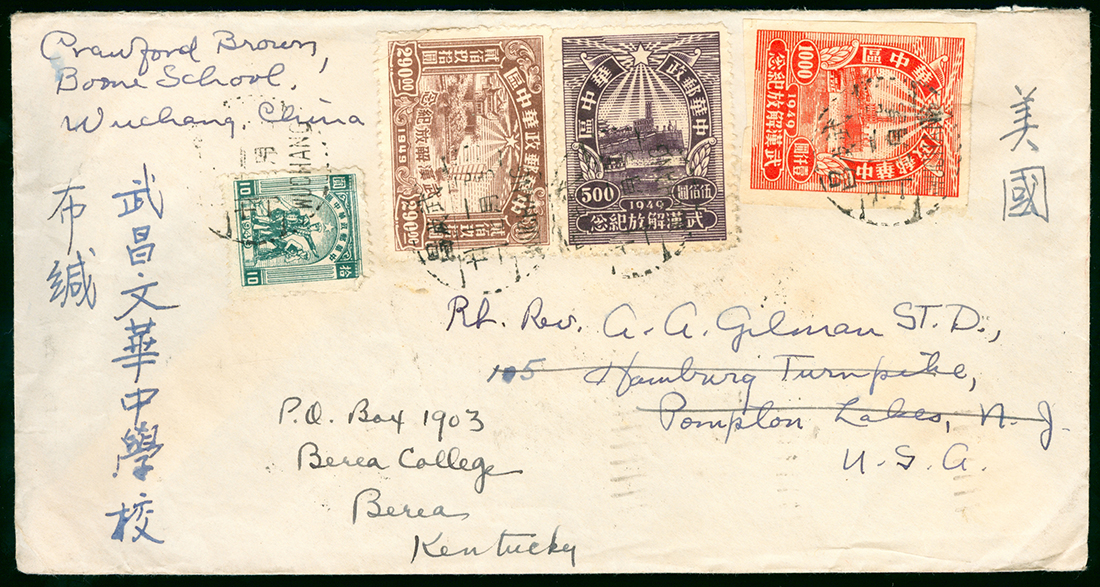 Crawford Brown,
Boone School,
Wuchang, China
武昌文華中學校
布緘
美國
10 圓 拾 10
290.00 貳佰玖拾圓
中華郵政華中區
武漢解放紀念
1949
中華郵政華中區
500 1949 伍佰圓
武漢解放紀念
1000 壹仟圓
中華郵政華中區
1949
武漢解放紀念
WUCHANG
Rt. Rev. A. A. Gilman S.T.D.,
105 Hamburg Turnpike,
Pompton Lakes, N.J.
U.S.A.
P.O. Box 1903
Berea College
Berea
Kentucky